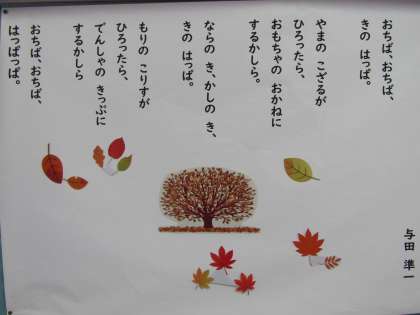 おちば、おちば、
きの はっぱ。
やまの こざるが
ひろったら、
おもちゃの おかねに
するかしら。
ならの き、かしの き、
きの はっぱ。
もりの こりすが
ひろったら、
でんしゃの きっぷに
するかしら
おちば、おちば、
はっぱっぱ。
与田 準一